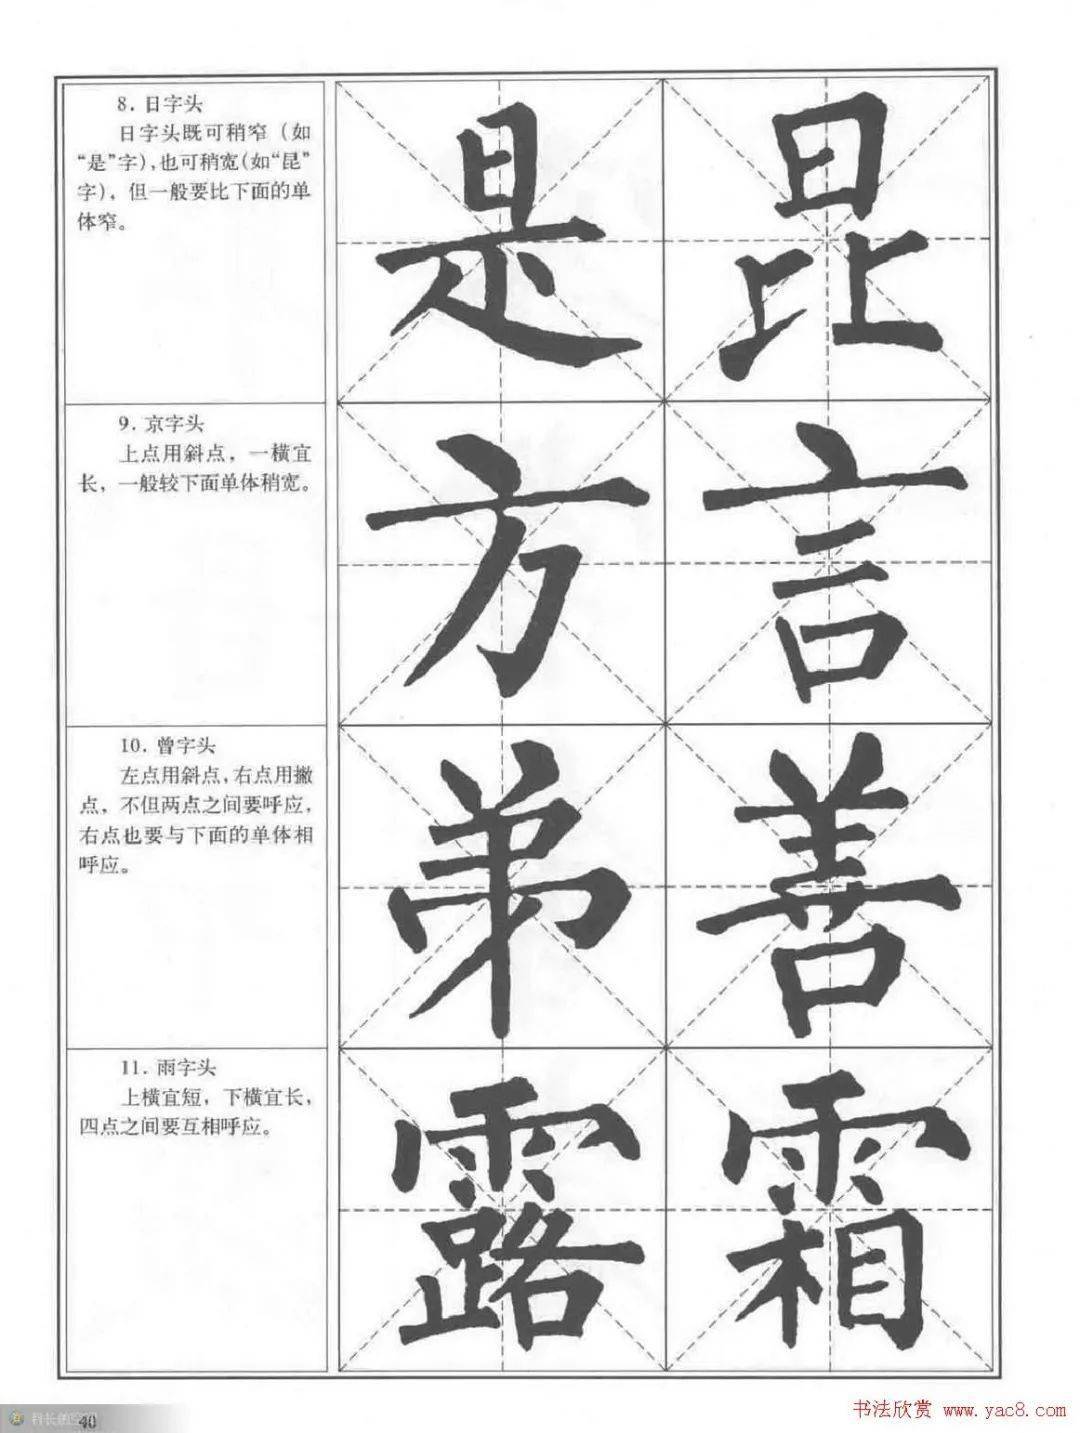 8. 日字头
日字头既可稍窄（如
“是”字），也可稍宽（如“昆”
字），但一般要比下面的单
体窄。
是 昆
9. 京字头
上点用斜点，一横宜
长，一般较下面单体稍宽。
方 言
10. 曾字头
左点用斜点，右点用撇
点，不但两点之间要呼应，
右点也要与下面的单体相
呼应。
弟 善
11. 雨字头
上横宜短，下横宜长，
四点之间要互相呼应。
露 霜
40
书法欣赏 www.yac8.com